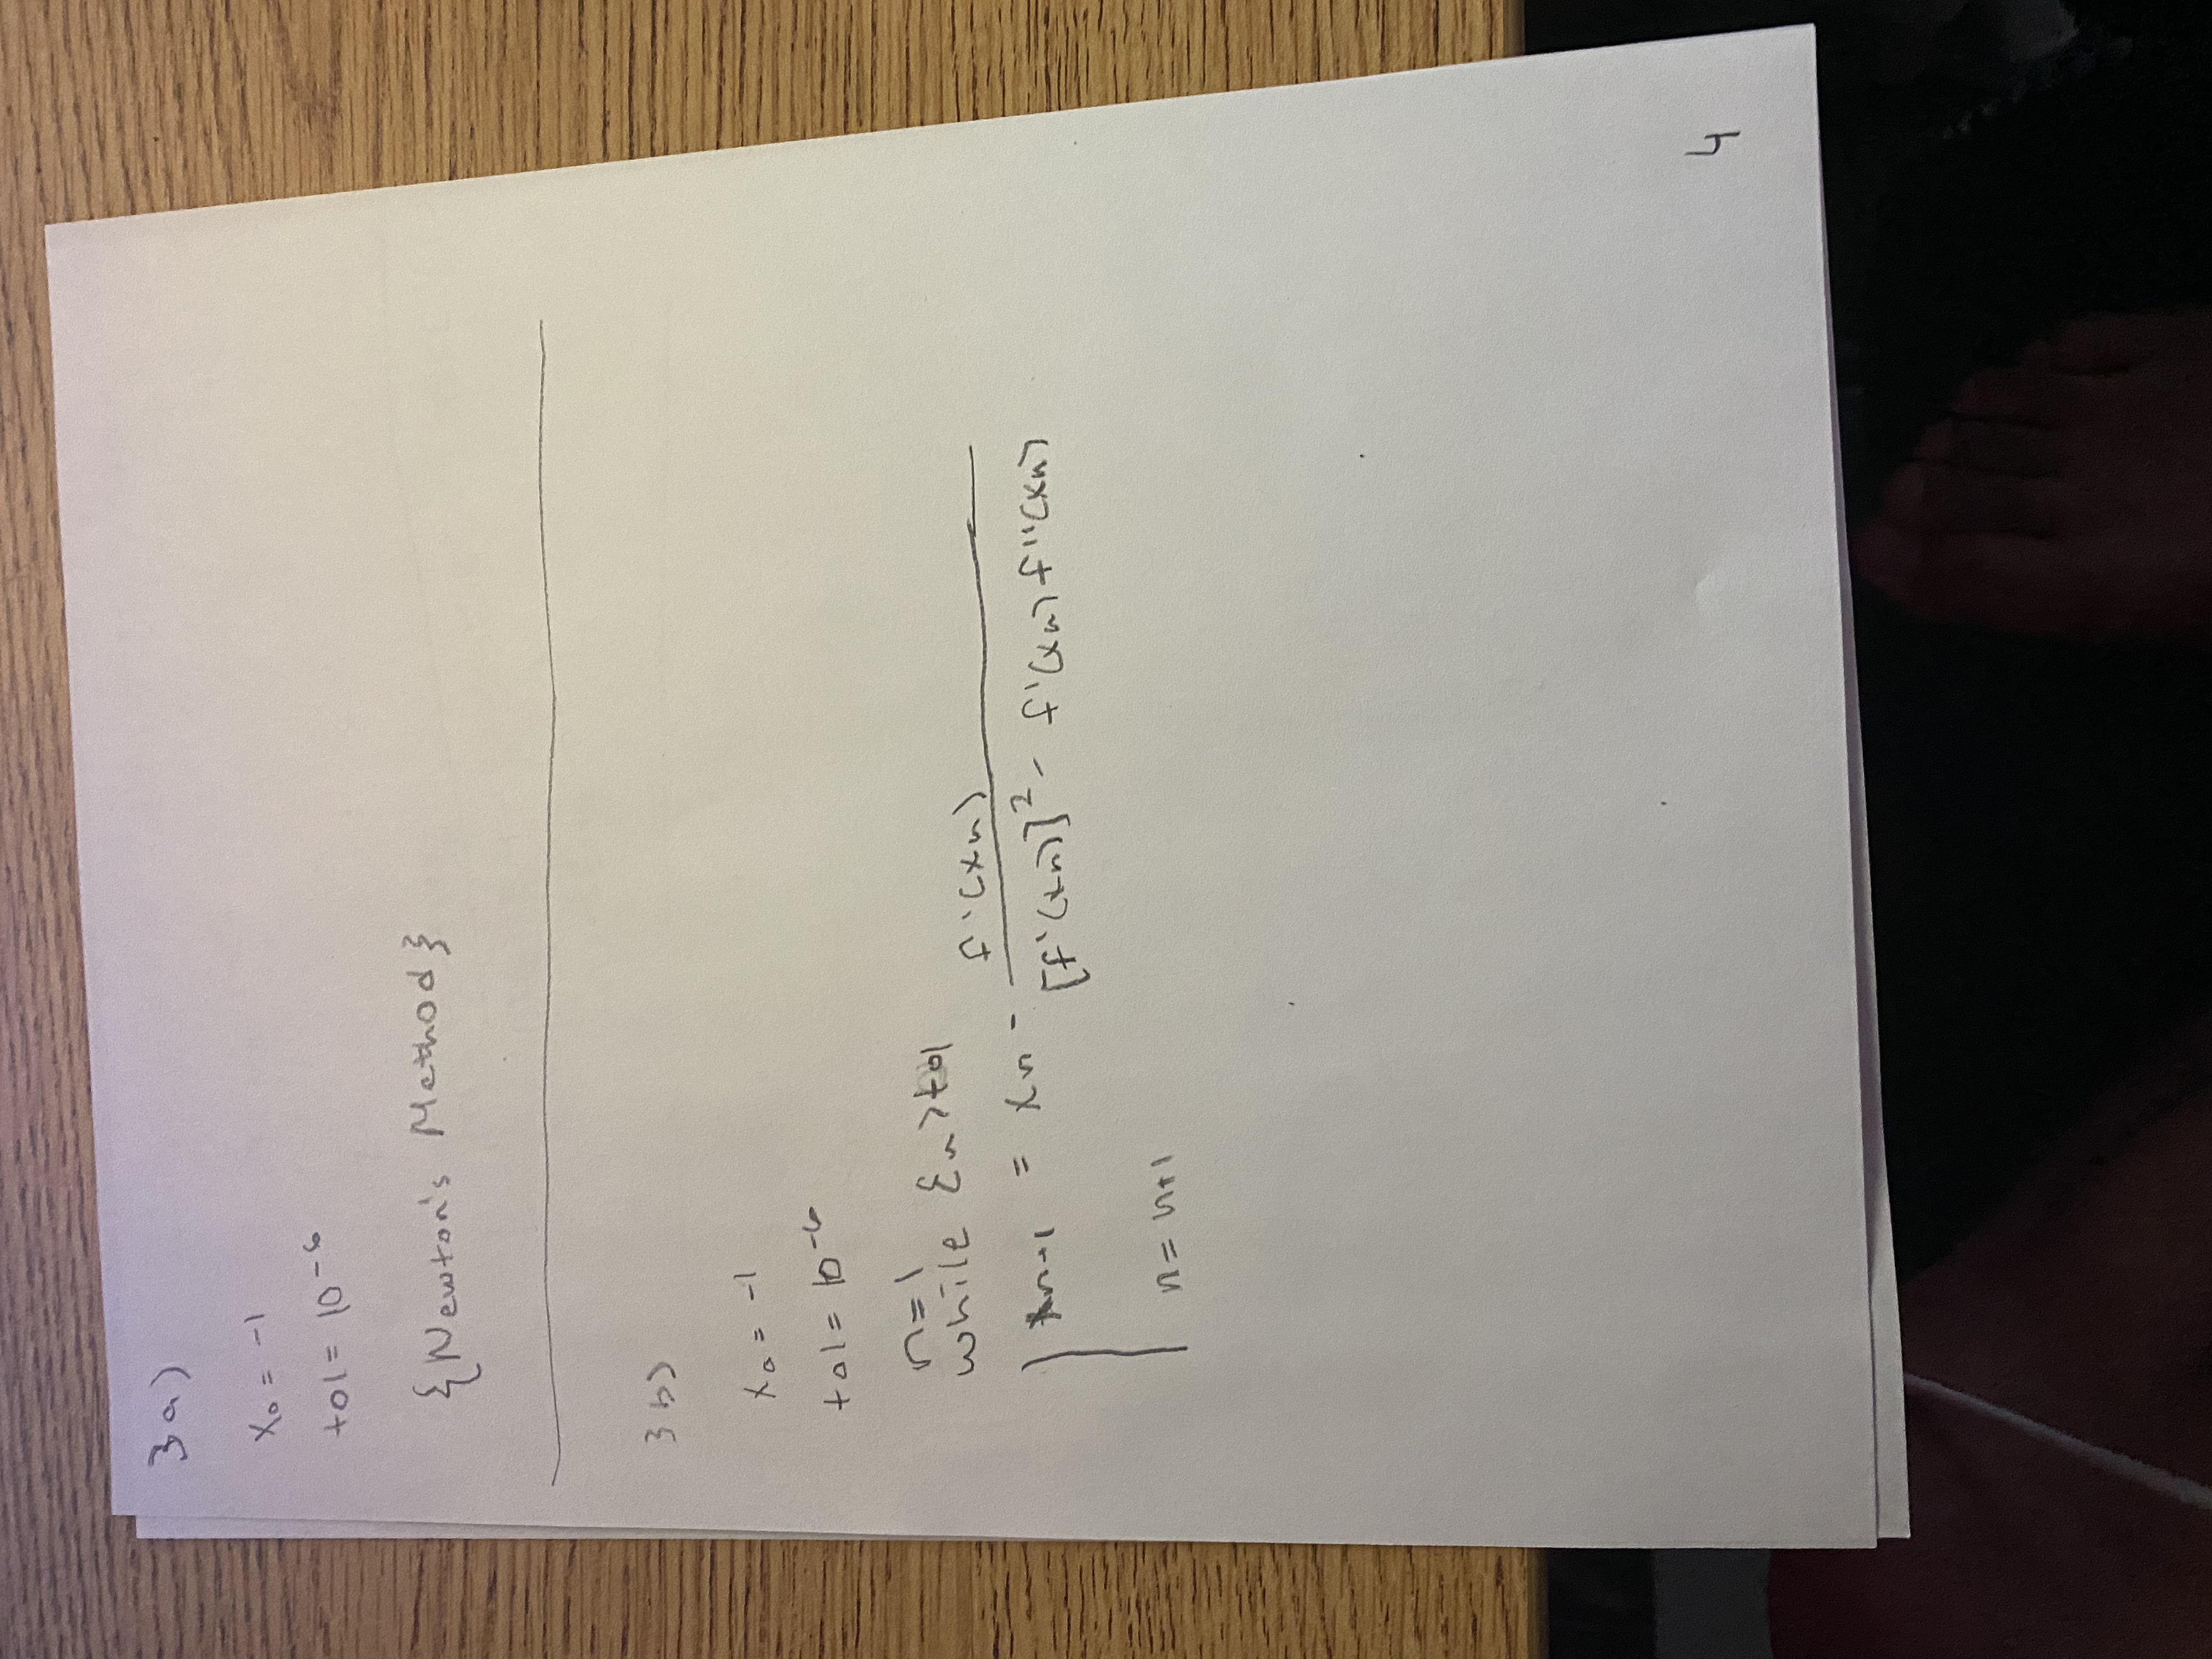 3a)
x₀ = -1
tol = 10⁻⁶
{Newton's Method}
3b)
x₀ = -1
tol = 10⁻⁶
n=1
while Ɛn>tol
xn+1 = xn - f'(xn) / [f'(xn)]² - f'(xn) f''(xn)
n = n+1
4